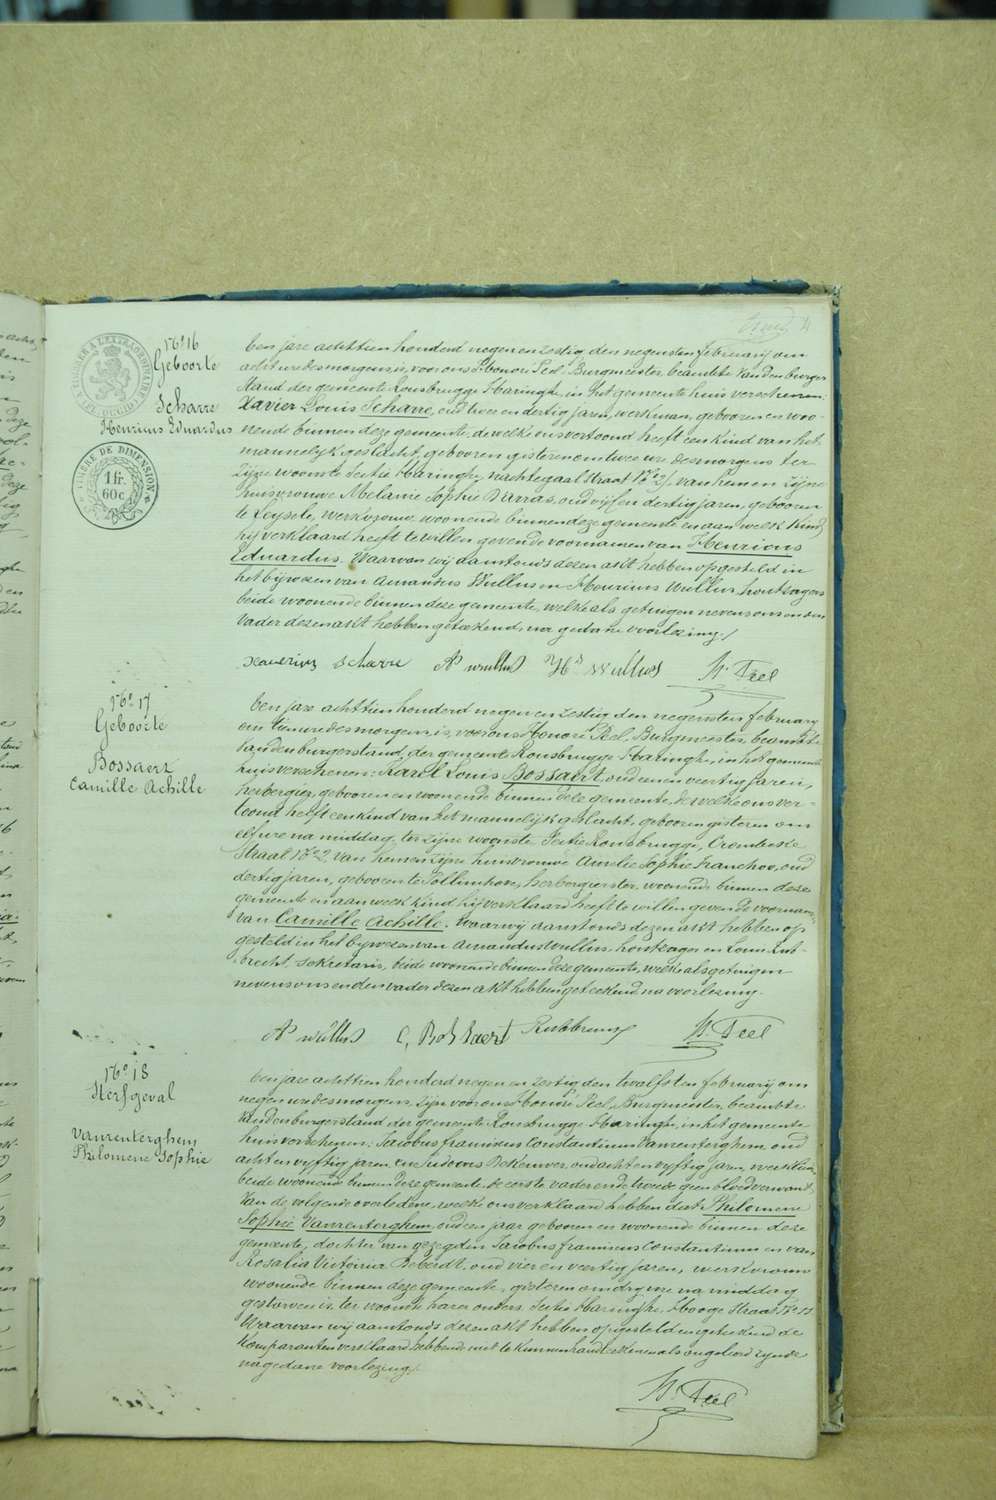 No 16
Geboorte
Scharre
Henricus Eduardus
TIMBRE DE DIMENSION
1 fr.
60c
den jare achttien honderd negen en zestig, den negensten february om
acht ure des morgens, is voor ons Honoré Peel, Burgmeester, beambte van den burger
stand der gemeente Rousbrugge Haringhe, in het gemeente huis verschenen:
Xavier Louis Scharre, oud twee en dertig jaren, werkman, geboren en woo-
nende binnen deze gemeente, de welke ons vertoond heeft een kind van het
mannelijk geslacht, geboren gisteren om twee ure des morgens ter
zijne woonste Sectie Haringhe, nachtegaal straat No 21, van hem en zijne
huisvrouwe Melanie Sophie Darras, oud vijf en dertig jaren, geboren
te Leysele, werkvrouw, woonende binnen deze gemeente en aan welk kind
hij verklaard heeft te willen geven de voornamen van Henricus
Eduardus. Waarvan wij aanstonds dezen akt hebben opgesteld in
het bijwezen van Amandus Wullus en Henricus Wullus, houtzagers
beide woonende binnen deze gemeente, welke als getuigen nevens ons en den
vader dezen akt hebben geteekend, na gedane voorlezing./
xaverius scharre A wullus Hs wullus H. Peel
No 17
Geboorte
Bossaert
Camille Achille
den jare achttien honderd negen en zestig den negensten february
om tien ure des morgens, is voor ons Honoré Peel, Burgmeester, beambte
van den burgerstand, der gemeente Rousbrugge Haringhe, in het gemeente
huis verschenen: Karel Louis Bossaert, oud een en veertig jaren,
herbergier, geboren en woonende binnen deze gemeente, de welke ons ver-
toond heeft een kind van het mannelijk geslacht, geboren gisteren om
elf ure na middag, ter zijne woonste Sectie Rousbrugge, Crombeke
straat No 22, van hem en zijne huisvrouwe Amelie Sophie Franchoo, oud
dertig jaren, geboren te Pollinkove, herbergierster, woonende binnen deze
gemeente en aan welk kind hij verklaard heeft te willen geven de voornamen
van Camille Achille. Waarvan wij aanstonds dezen akt hebben op
gesteld in het bijwezen van Amandus Wullus, houtzager en Louis Rub-
brecht, sekretaris, beide woonende binnen deze gemeente, welke als getuigen
nevens ons en den vader dezen akt hebben geteekend, na voorlezing.
A wullus C, Bossaert H. Peel
No 18
Sterfgeval
Vanrenterghem
Philomene Sophie
den jare achttien honderd negen en zestig den twalfsten february om
negen ure des morgens, zijn voor ons Honoré Peel, Burgmeester, beambte
van den burgerstand der gemeente Rousbrugge Haringhe, in het gemeente
huis verschenen: Jacobus franciscus Constantinus Vanrenterghem, oud
acht en vijftig jaren, en oud acht en vyftig jaren, werklieden
beide woonende binnen deze gemeente, de eerste vader en de tweede geen bloedverwant
van de volgende overledene, welke ons verklaard hebben dat Philomene
Sophie Vanrenterghem, oud een jaar geboren en woonende binnen deze
gemeente, dochter van gezegden Jacobus franciscus Constantinus en van
Rosalia Victoria oud vier en veertig jaren, werkvrouw
woonende binnen deze gemeente, gisteren om dry ure na middag
gestorven is, ter woonste harer ouders Sectie Haringhe, Hooge straat No
Waarvan wij aanstonds dezen akt hebben opgesteld en geteekend de
komparanten verklaard hebbende niet te kunnen handteekenen als ongeleerd zynde
na gedane voorlezing./
H. Peel